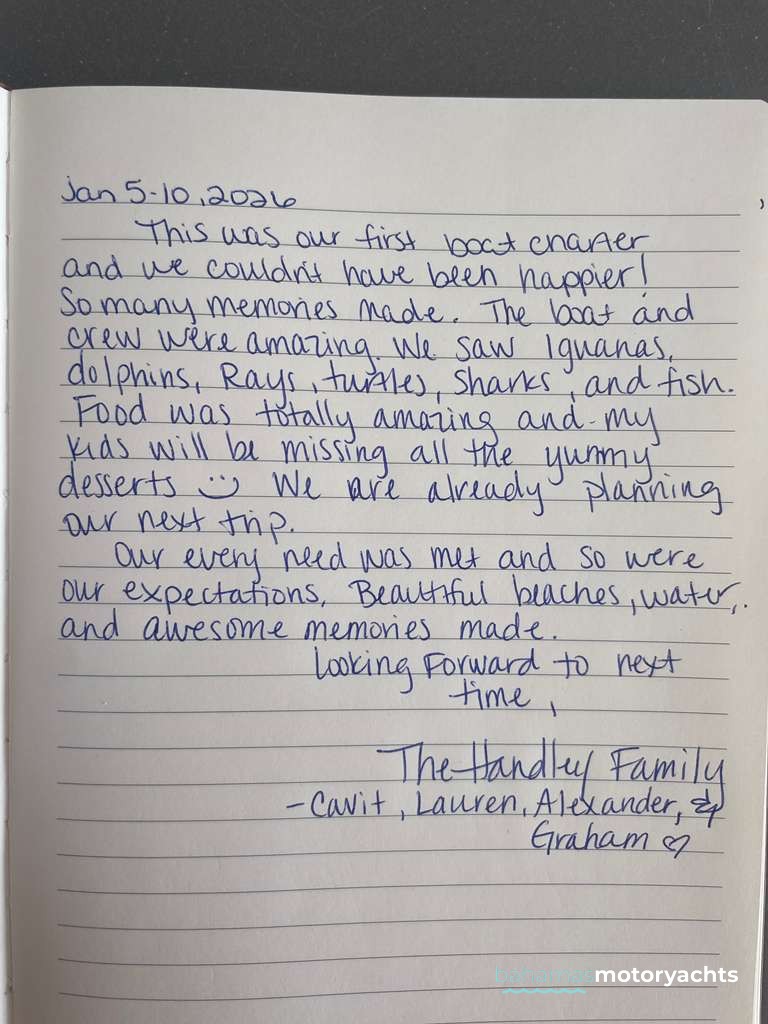 Jan 5-10, 2026
This was our first boat charter
and we couldn't have been happier!
So many memories made. The boat and
crew were amazing. We saw Iguanas,
dolphins, Rays, turtles, Sharks, and fish.
Food was totally amazing and my
kids will be missing all the yummy
desserts :) We are already planning
our next trip.
Our every need was met and so were
our expectations. Beautiful beaches, water,
and awesome memories made.
Looking Forward to next
time,
The Handley Family
- Cavit, Lauren, Alexander, &
Graham ♡
bahamasmotoryachts